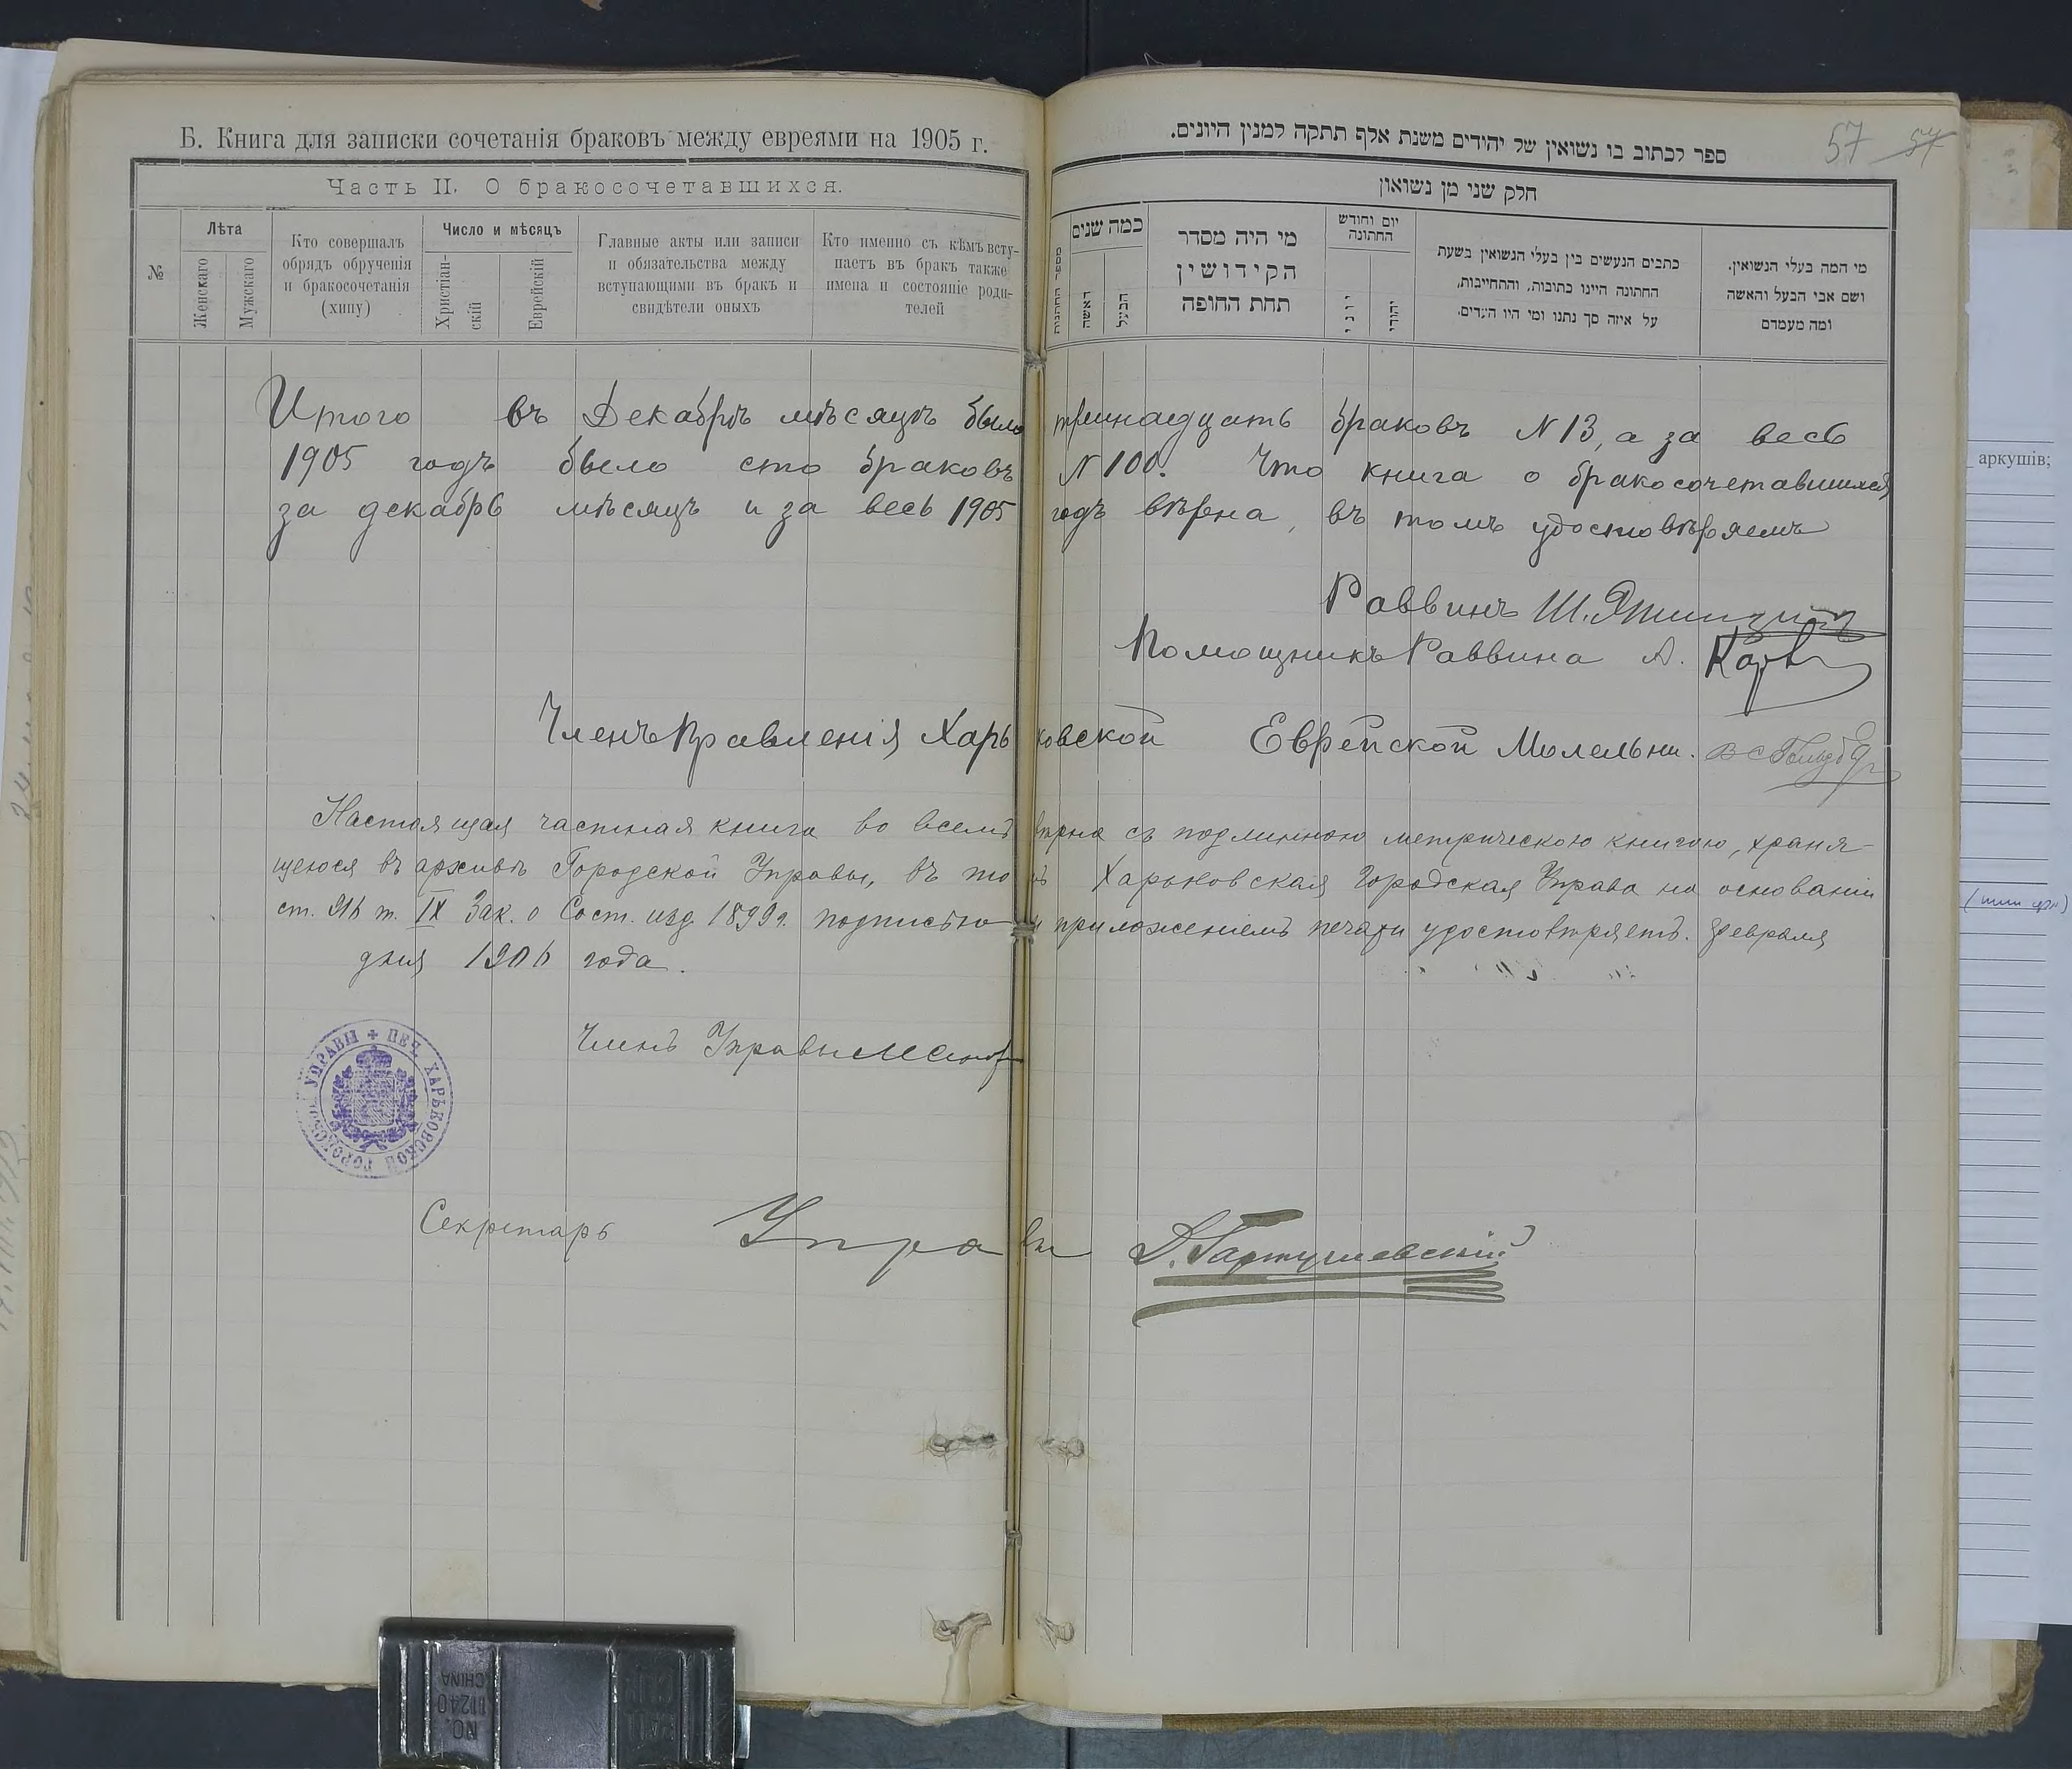 Б. Книга для записки сочетанія браковъ между евреями на 1905 г.
ספר לכתוב בו נשואין של יהודים משנת אלף תתקה למנין היונים.
57 57
Часть II. О бракосочетавшихся.
חלק שני מן נשואון
№
Лѣта
Женскаго
Мужскаго
Кто совершалъ
обрядъ обрученія
и бракосочетанія
(хипу)
Число и мѣсяцъ
Христіан-
скій
Еврейскій
Главные акты или записи
и обязательства между
вступающими въ бракъ и
свидѣтели оныхъ
Кто именно съ кѣмъ всту-
паетъ въ бракъ также
имена и состояніе роди-
телей
מספר החתונות
כמה שנים
האשה
הבעל
מי היה מסדר
הקידושין
תחת החופה
יום וחודש
החתונה
יוני
יהודי
כתבים הנעשים בין בעלי הנשואין בשעת
החתונה היינו כתובות, והתחייבות,
על איזה סך נתנו ומי היו העדים.
מי המה בעלי הנשואין.
ושם אבי הבעל והאשה
ומה מעמדם
Итого въ Декабрѣ мѣсяцѣ было тринадцать браковъ N 13, а за весь
1905 годъ было сто браковъ N 100. Что книга о бракосочетавшихся
за декабрь мѣсяцъ и за весь 1905 годъ вѣрна, въ томъ удостовѣряемъ
Раввинъ Ш.
Помощникъ Раввина А.
Членъ Правленія Харьковской Еврейской Молельни.
Настоящая частная книга во всемъ вѣрна съ подлинною метрическою книгою, храня-
щеюся въ архивѣ Городской Управы, въ томъ Харьковская Городская Управа на основаніи
ст. 916 т. IX Зак. о Сост. изд. 1899 г. подписью и приложеніемъ печати удостовѣряетъ. Февраля
дня 1906 года.
Членъ Управы
ПЕЧ. ХАРЬКОВСКОЙ ГОРОДСКОЙ УПРАВЫ
Секретарь Управы
аркушів;
NO.
BT240
CHINA